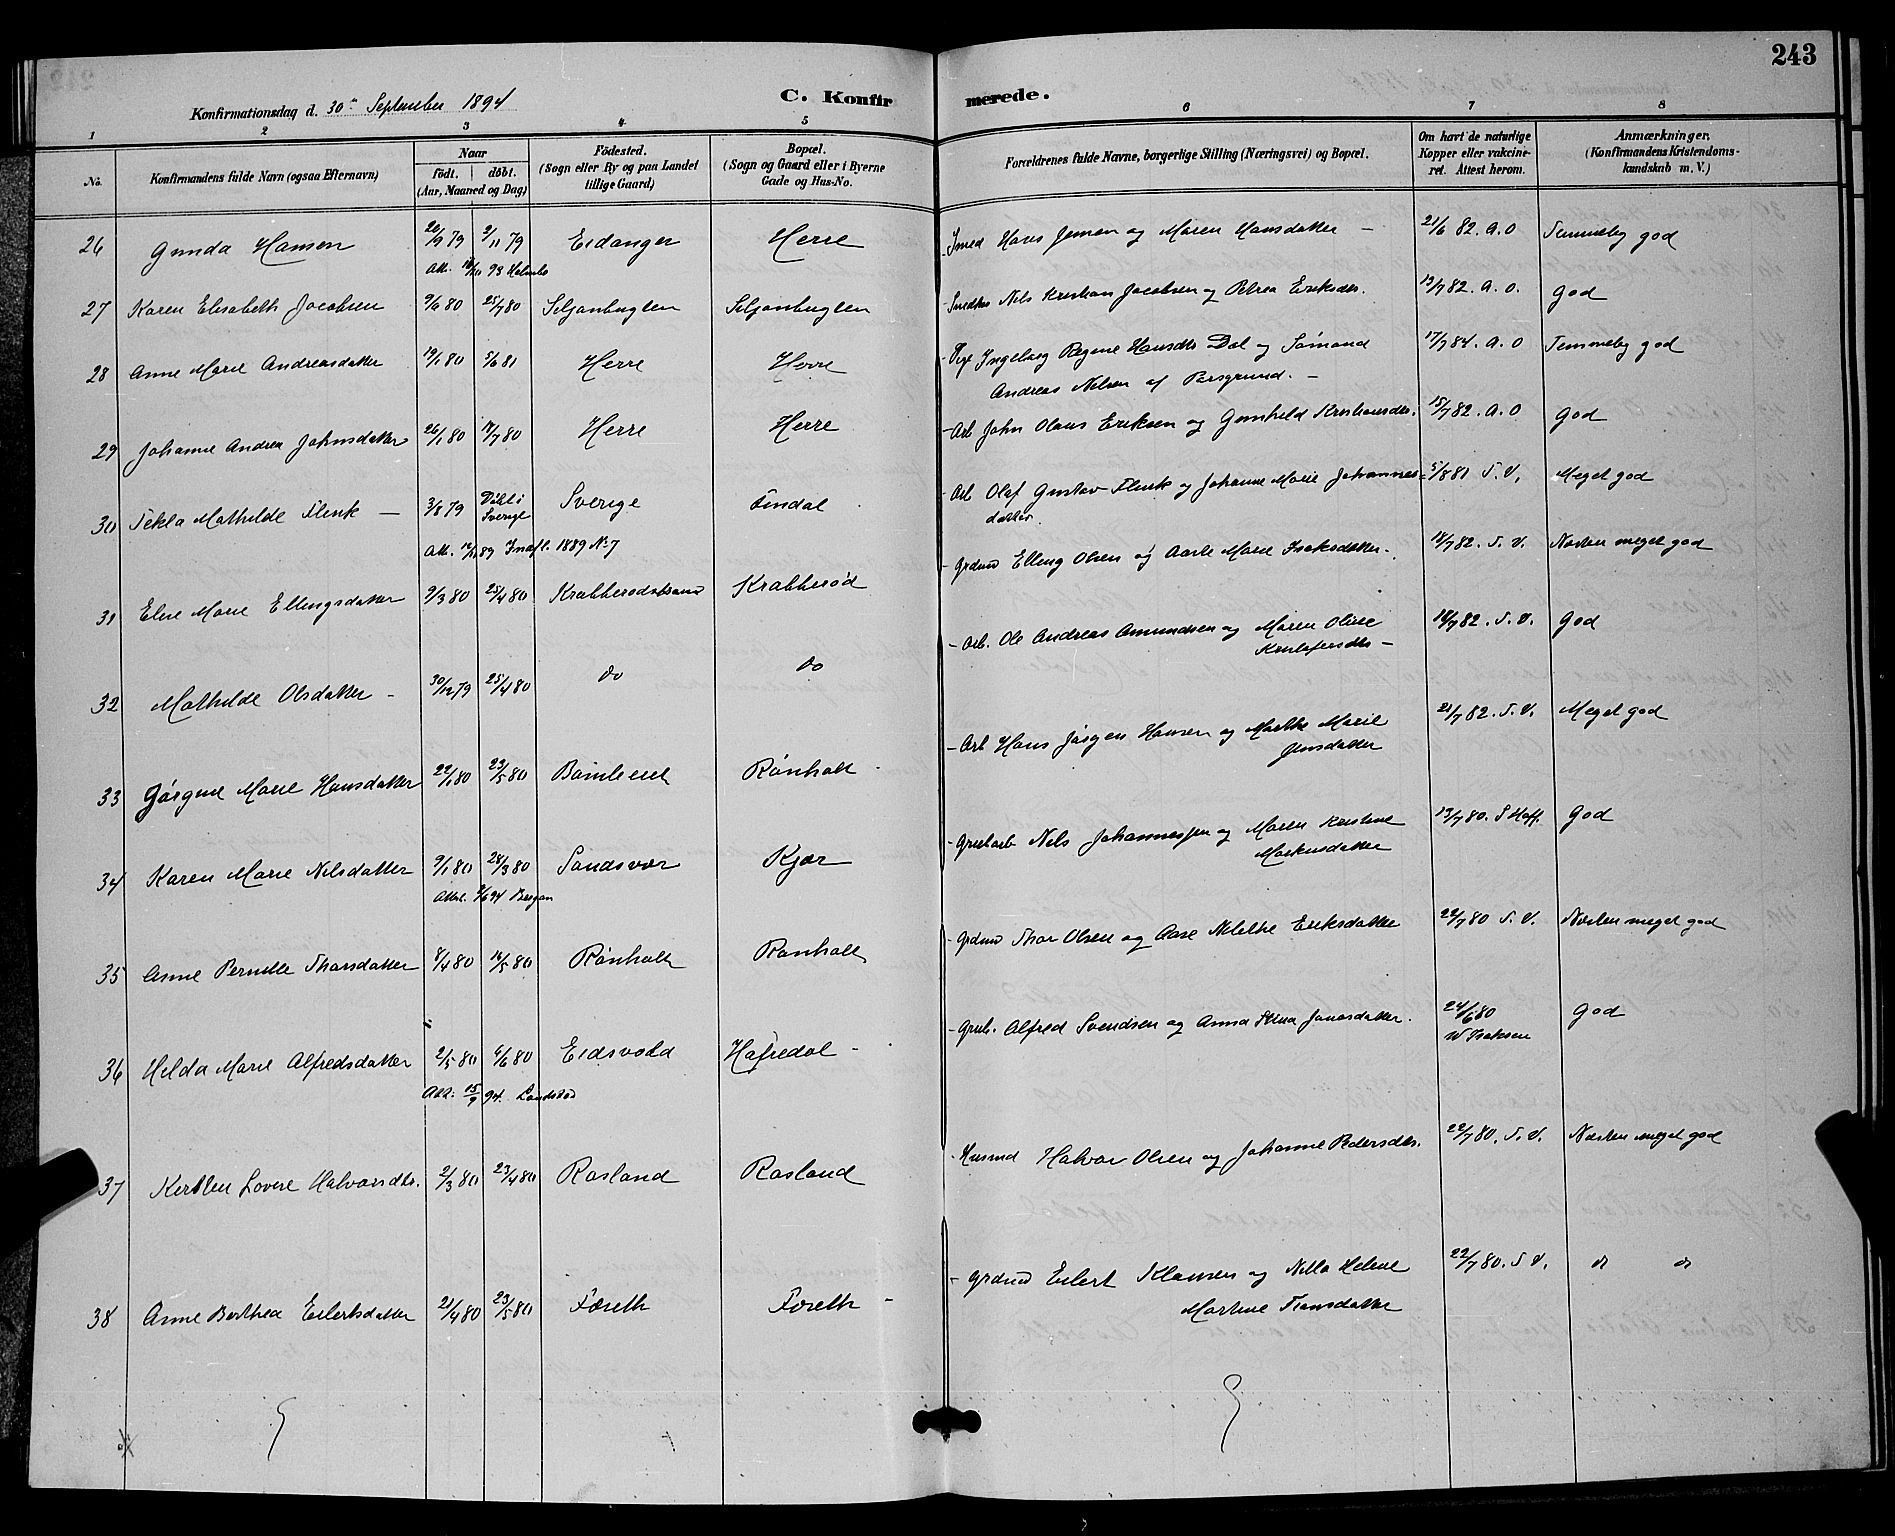 243
Konfirmationsdag d. 30te September 1894
C. Konfirmerede.
1 2 3 4 5 6 7 8
No.
Konfirmandens fulde Navn (ogsaa Efternavn)
Naar
født. døbt.
(Aar, Maaned og Dag)
Fødested.
(Sogn eller By og paa Landet
tillige Gaard)
Bopæl.
(Sogn og Gaard eller i Byerne
Gade og Hus-No.
Forældrenes fulde Navne, borgerlige Stilling (Næringsvei) og Bopæl.
Om havt de naturlige
Kopper eller vakcine-
ret. Attest herom.
Anmærkninger.
(Konfirmandens Kristendoms-
kundskab m. V.)
26 Gunda Hansen 79 2/11 79 Eidanger Herre Smed Hans Jensen og Maren Hansdatter - 21/6 82. A. O Temmelig god
27 Karen Elisabeth Jacobsen 9/6 80 25/7 80 Seljanbugten Seljanbugten - Snedker Nils Kristian Jacobsen og Petrea Eriksdtr. 19/7 82. A. O. God
28 Anne Marie Andreasdatter 19/1 80 5/6 81 Herre Herre - Pige Ingeborg Regine Hansdtr Dal og Sømand
Andreas Nilsen af Porsgrund. - 17/7 84. A. O Temmelig god
29 Johanne Andrea Johnsdatter 26/1 80 11/7 80 Herre Herre - Arb John Olaus Eriksen og Gunhild Kristiansdtr. 15/7 82. A. O God
30 Tekla Mathilde Flink - 3/8 79 Døbt i
Sverige Sverige Findal - Arb Olaf Gustav Flink og Johanne Marie Johannes-
datter. 5/8 81 S. V. Meget god
Att. 89 Indfl. 1889 No 7
31 Elise Marie Ellingsdatter 9/3 80 25/4 80 Krabberødstrand Krabberød - Grdmd Elling Olsen og Aaste Marie Isaksdatter. 18/7 82. S. V. Næsten meget god
32 Mathilde Olsdatter - 30/12 79 25/4 80 do do - Arb. Ole Andreas Amundsen og Maren Oline
Kristofersdtr - 18/7 82. S. V. God
33 Jørgine Marie Hansdatter 22/1 80 23/5 80 Bamle Rønholt - Arb Hans Jørgen Hansen og Marthe Marie
Jensdatter 21/7 82. S. V. Meget god
34 Karen Marie Nilsdatter 9/1 80 28/3 80 Sandsvær Kjær - Grubarb Nils Johannessen og Maren Kirstine
Markusdatter 13/7 80. S Hoff. God
35 Anne Pernille Thorsdatter 8/4 80 16/5 80 Rønholt Rønholt - Grdmd Thor Olsen og Aase Mathe Eriksdatter 22/7 80 S. V. Næsten meget god
36 Helda Marie Alfredsdatter 2/5 80 6/6 80 Eidsvold Hafredal - - Grub. Alfred Svendsen og Anna Stina Jonasdatter. 24/6 80
W Isaksen God
Att: 15/9 94.
37 Kirsten Lovise Halvorsdtr. 2/3 80 23/4 80 Rosland Rosland - Husmd Halvor Olsen og Johanne Pedersdtr. 22/7 80. S. V. Næsten meget god
38 Anne Berthea Eilertsdatter 21/4 80 23/5 80 Foreth Foreth - - Grdmd Eilert Klausen og Nilla Helene
Martine Fransdatter 22/7 80. S V. do do